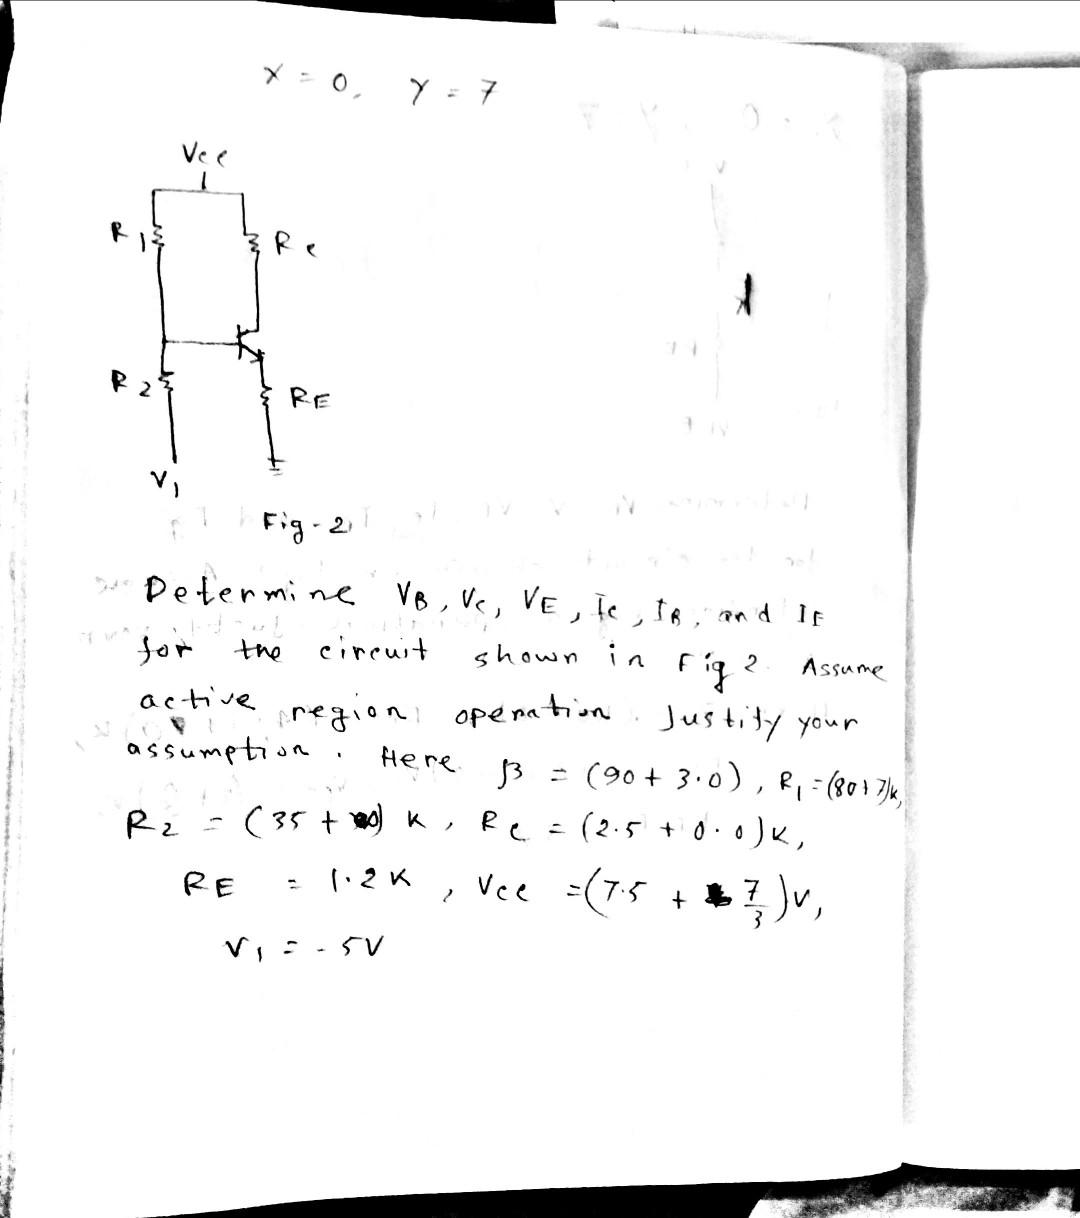 X = 0, Y = 7
Vcc
R1
Rc
R2
RE
V1
Fig-2
Determine VB, Vc, VE, Ic, IB, and IE
for the circuit shown in Fig 2. Assume
active region operation. Justify your
assumption. Here β = (90 + 3.0), R1 = (80+7)k,
R2 = (35 + 0) K, Rc = (2.5 + 0.0)K,
RE = 1.2K, Vcc = (7.5 + 7/3)V,
V1 = -5V